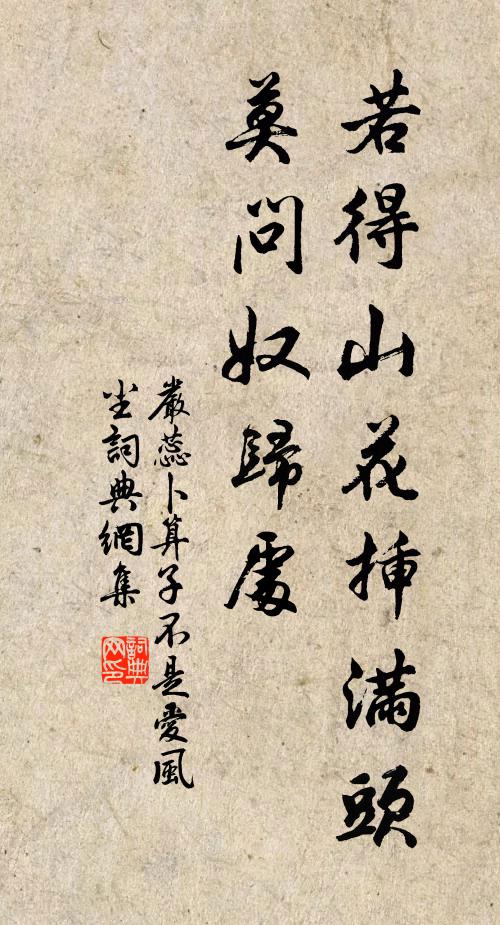 若得山花插滿頭
莫問奴歸處
嚴蕊卜算子不是愛風
尘詞典網集
詞典
网印